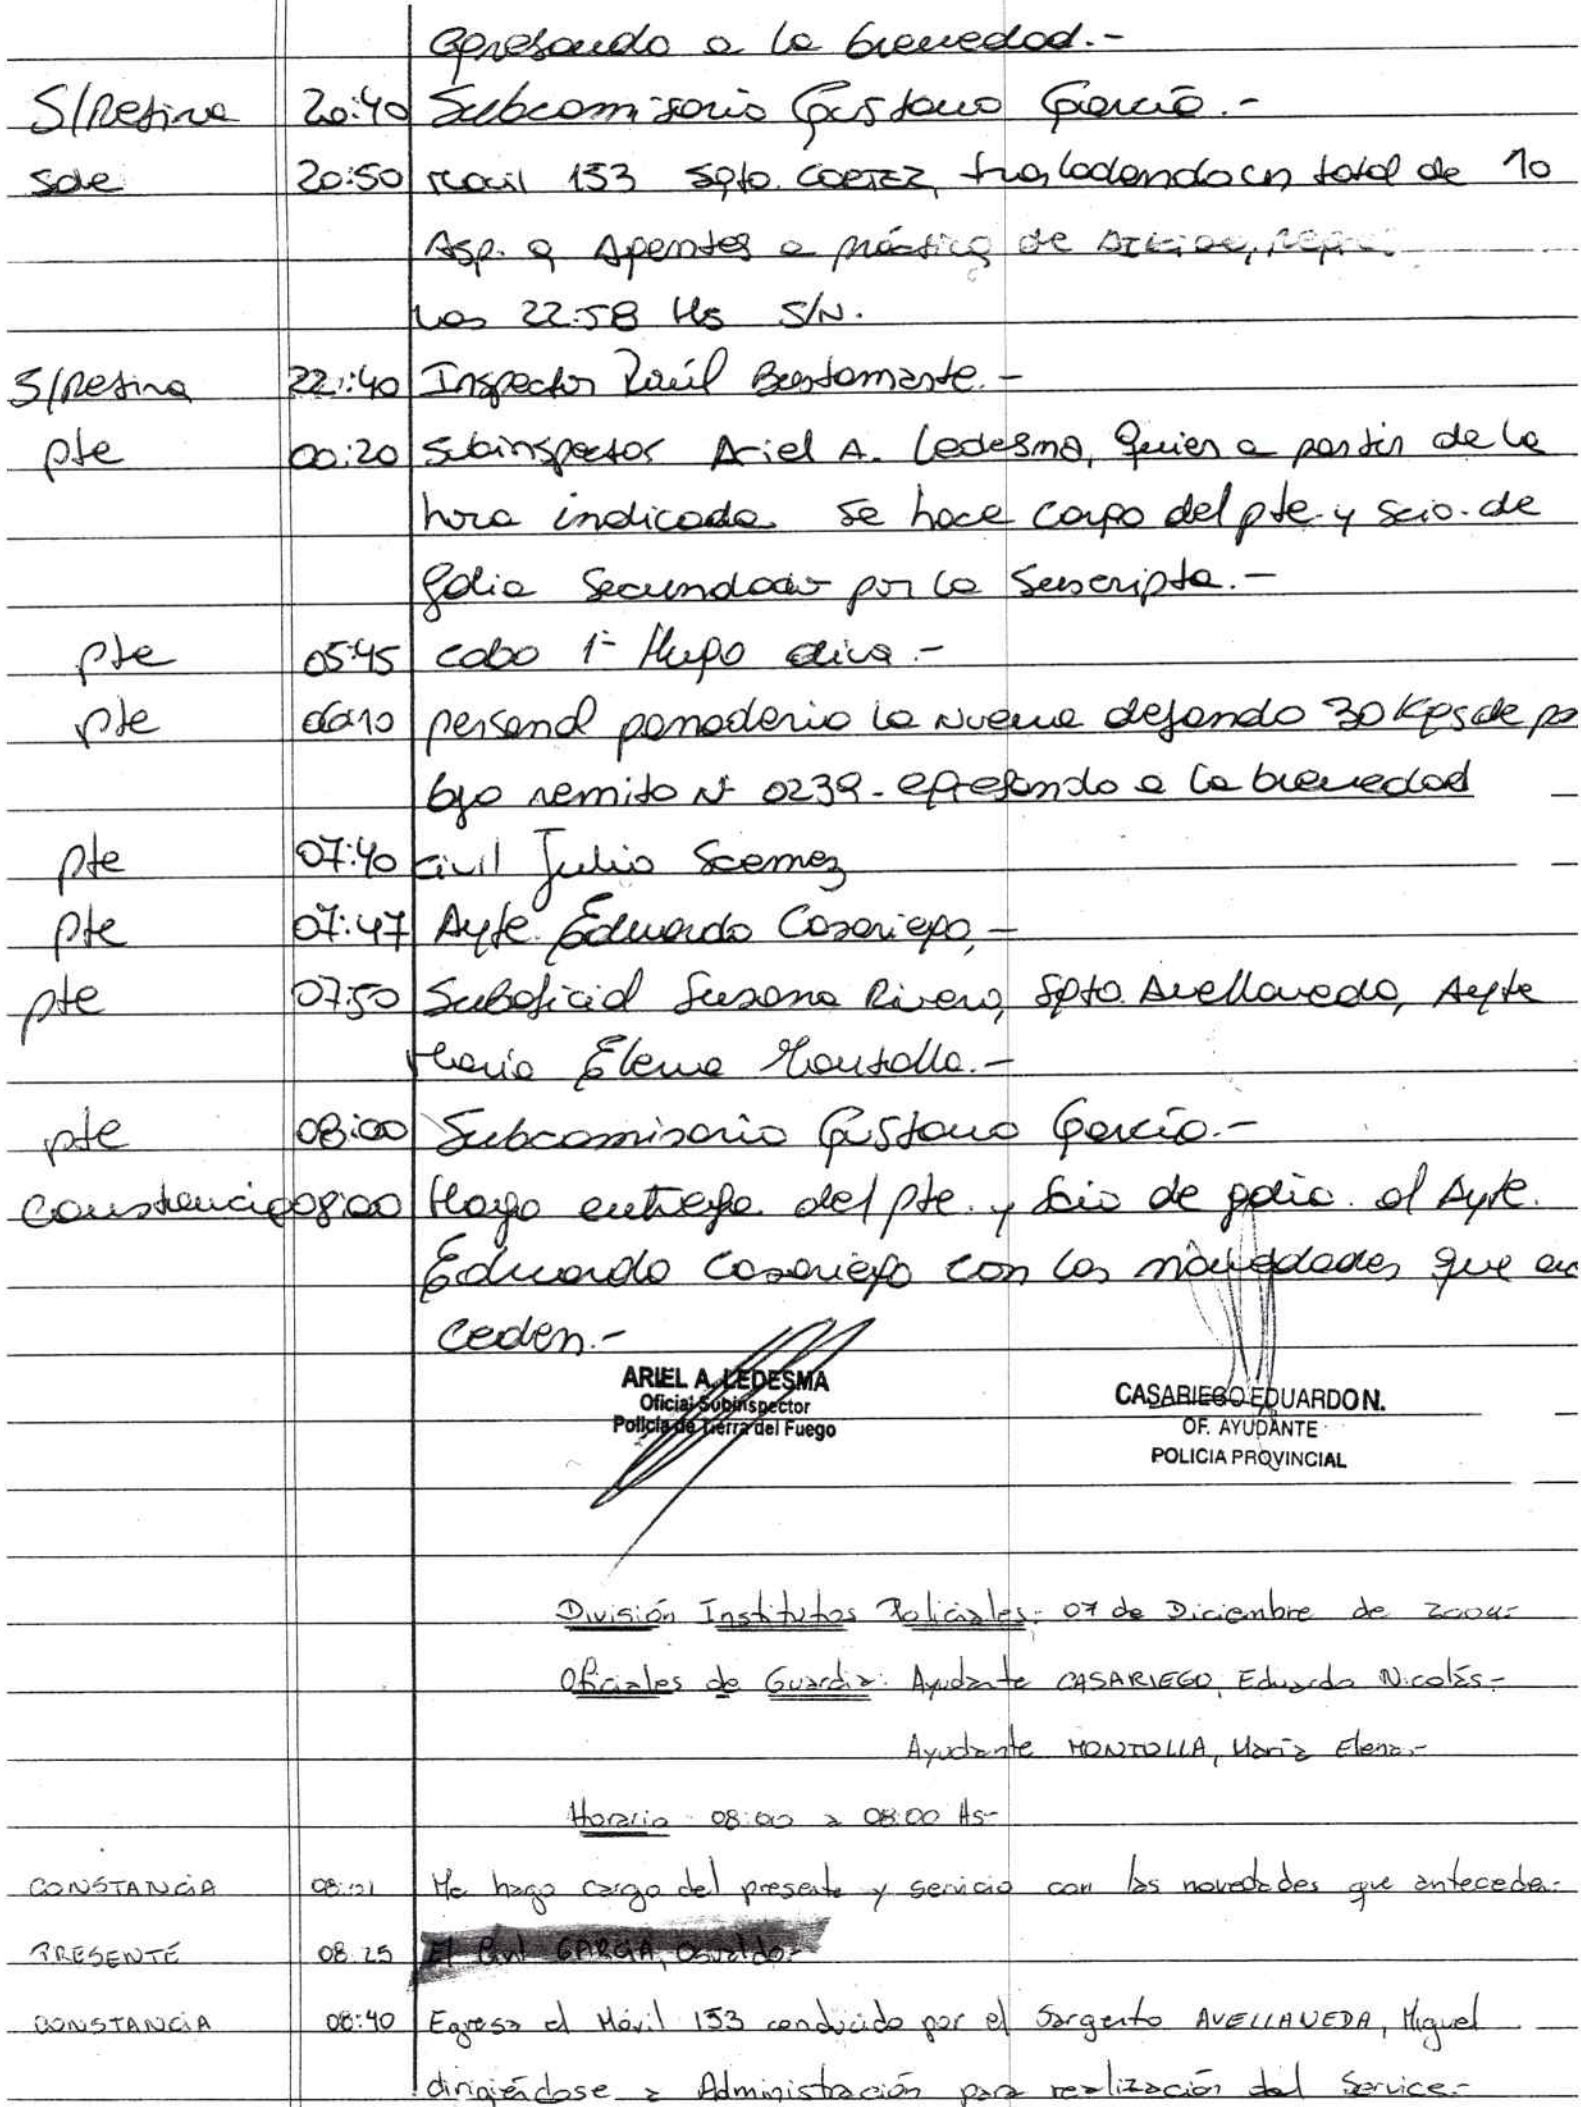 egresando a la brevedad.-
S/Retira 20:40 Subcomisario Gustavo García.-
Sale 20:50 Movil 153 Sgto. CORTEZ, trasladando un total de 10
Asp. a Agentes a práctica de
Las 22:58 Hs S/N.
S/Retira 22:40 Inspector Raúl Bustamante.-
pte 00:20 Subinspector Ariel A. Ledesma, Quien a partir de la
hora indicada se hace cargo del pte. y Scio. de
Gdia Secundado por la Suscripta.-
pte 05:45 cabo 1º Hugo
pte 06:10 personal panaderia la Nueva dejando 30 Kgs de pa
bjo remito Nº 0239- egresando a la brevedad
pte 07:40 Civil Julio
pte 07:47 Ayte. Eduardo Casariego,-
pte 07:50 Suboficial Susana Rivero, Sgto. Avellaneda, Ayte
Maria Elena Montolla.-
pte 08:00 Subcomisario Gustavo García.-
Constancia 08:00 Hago entrega del pte. y Scio de gdia. al Ayte.
Eduardo Casariego con las novedades que an
ceden.-
ARIEL A. LEDESMA
Oficial Subinspector
Policia de Tierra del Fuego
CASARIEGO EDUARDO N.
OF. AYUDANTE
POLICIA PROVINCIAL
División Institutos Policiales:- 07 de Diciembre de 2004:-
Oficiales de Guardia: Ayudante CASARIEGO, Eduardo Nicolás.-
Ayudante MONTOLLA, María Elena.-
Horario 08:00 a 08:00 Hs-
CONSTANCIA 08:01 Me hago cargo del presente y servicio con las novedades que anteceden:-
PRESENTE 08:25 El GARCIA, Osvaldo-
CONSTANCIA 08:40 Egresa el Móvil 153 conducido por el Sargento AVELLANEDA, Miguel
dirigiéndose a Administración para realización del Service.-